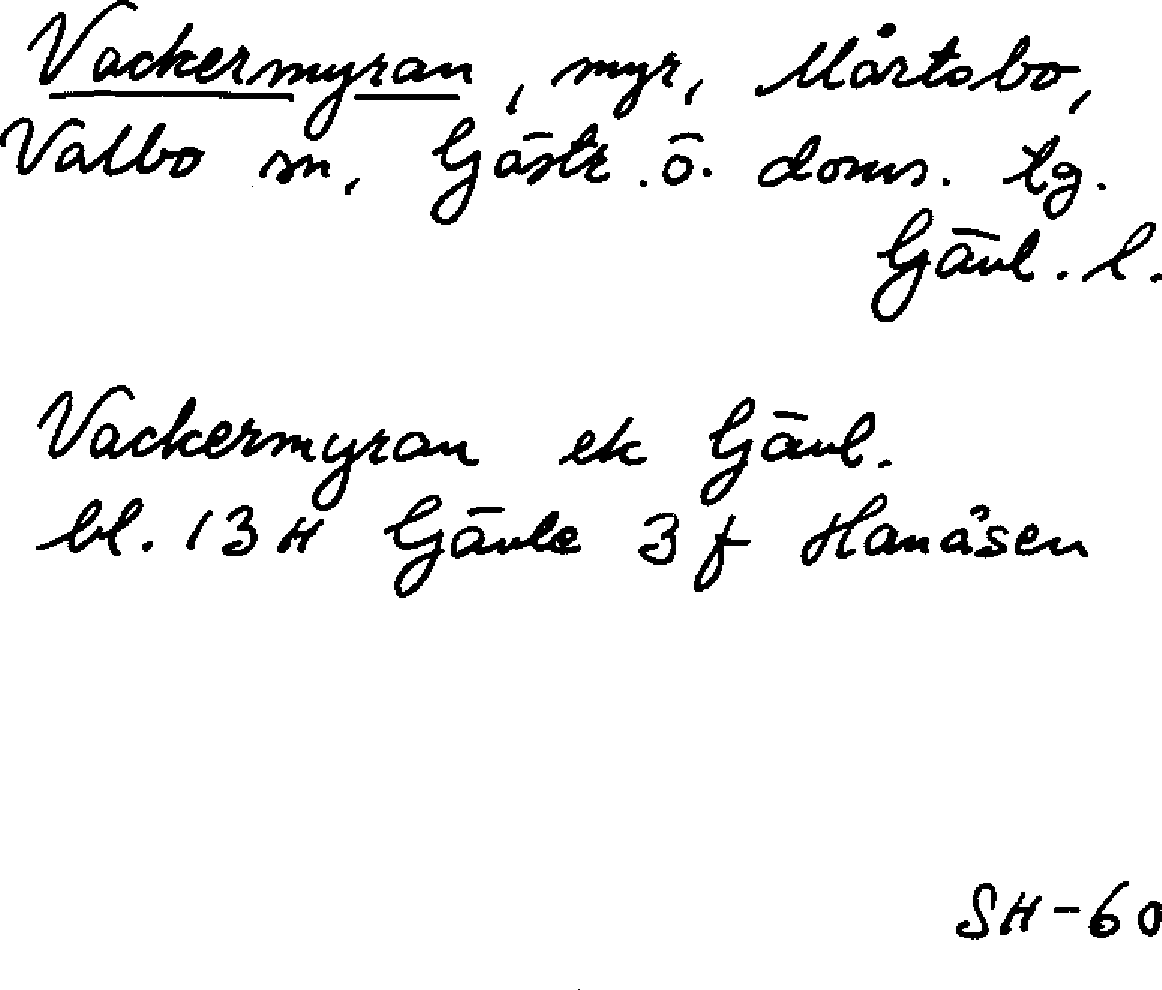 Vackermyran, myr, Mårtsbo,
Valbo sn, Gästr. ö. doms. tg.
Gävl. l.
Vackermyran ek Gävl.
bl. 13H Gävle 3f Hanåsen
SH-60